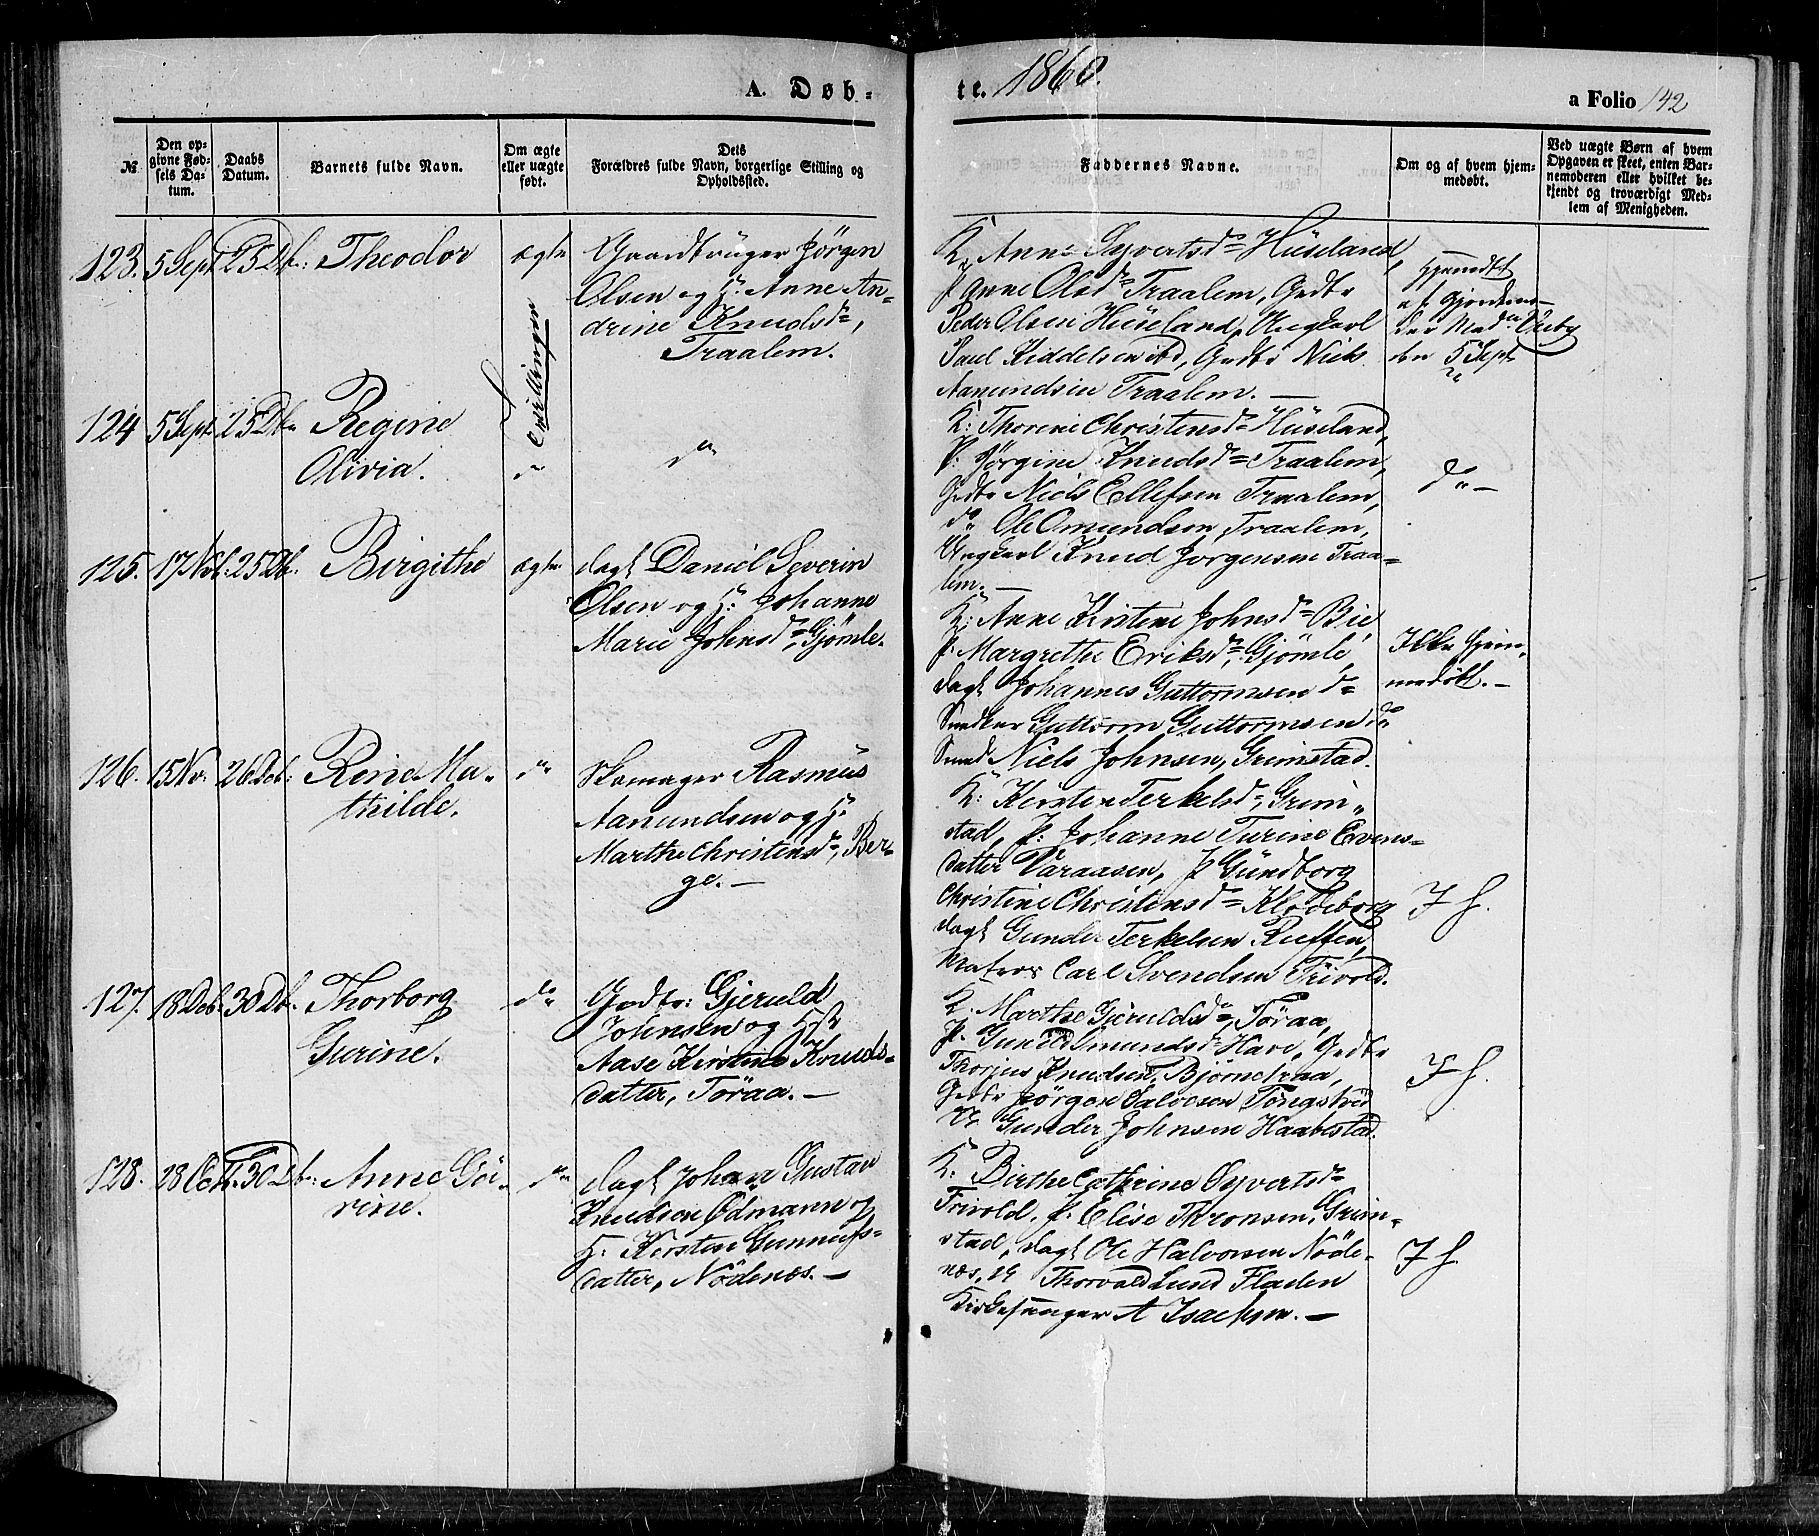 A. Døb-
te. 1860.
a Folio 142
№
Den op-
givne Fød-
sels Da-
tum.
Daabs
Datum.
Barnets fulde Navn.
Om ægte
eller uægte
født.
Dets
Forældres fulde Navn, borgerlige Stilling og
Opholdssted.
Faddernes Navne.
Om og af hvem hjem-
medøbt.
Ved uægte Børn af hvem
Opgaven er skeet, enten Bar-
nemoderen eller hvilket be-
kjendt og troværdigt Med-
lem af Menigheden.
123. 5 Sept 25 Db: Theodor ægte
Gaardbruger Jørgen
Olsen og H: Anne An-
drine Knudsdr,
Traalem.
K, Anne Syvertsdr Hüseland,
P Anne Olsdr Traalem, Gedbr
Peder Olsen Hüseland, Ungkarl
Paul Kiddelsen ibd, Gedbr Niels
Aamundsen Traalem. —
Hjemdbt
af Gjordemo-
der Madm
den 5 Sept
Tvillinger
124 5 Sept. 25 Db. Regine
Olivia. do
do
K: Thorine Christensdr Hüseland,
P: Jørgine Knudsdr Traalem,
Gedbr Niels Ellefsen Traalem,
do Ole Omundsen, Traalem,
Ungkarl Knud Jørgensen Traa-
lem. —
do —
125. 17 Nvb. 25 Db. Birgithe ægte
dagl Daniel Severin
Olsen og H: Johanne
Marie Johnsdr, Gjømle.
K: Anne Kirstine Johnsdr Bie
P: Margrethe Eriksdr, Gjømle,
dagl Johannes Guttormsen do
Snedker Guttorm Guttormsen do
Smed Niels Johnsen, Grimstad.
Ikke hjem-
medøbt. —
126. 15 Nv. 26 Deb: Rine Ma-
thilde. do
Skomager Rasmüs
Aanundsen og H:
Marthe Christensdr, Ber-
ge. —
K: Kirsten Terkelsdr, Grim-
stad, P: Johanne Turine Evens-
datter Varaasen, P Gündborg
Christine Christensdr Klodeborg
dagl Gunder Terkelsen
Matros Carl Svendsen Frivold.
I h.
127. 18 Deb. 30 Db. Thorborg
Gurine. do
Gedbr: Gjeruld
Johnsen og Hst
Aase Kirstine Knuds-
datter, Töraa. —
K. Marthe Gjeruldsdr, Töraa,
P. Guneld Omundsdr Have, Gedbr
Thorjus Knudsen, Bjornetraa,
Gedbr Jörgen Salvesen
Gunder Johnsen Haabestad.
I h.
128. 28 Oct. 30 Db: Anne Gü-
rine. do
dagl Johan Gustav
Knudsen Ödmann og
H. Kirsten Gunnufs-
datter, Nödenæs. —
K: Birthe Cathrine Syvertsdr
Frivold, P. Elise Thronsen, Grim-
stad, dagl Ole Halvorsen Nöde-
næs, Thorvald Lund Fladen
Kirkesanger A Isachsen. —
I h.